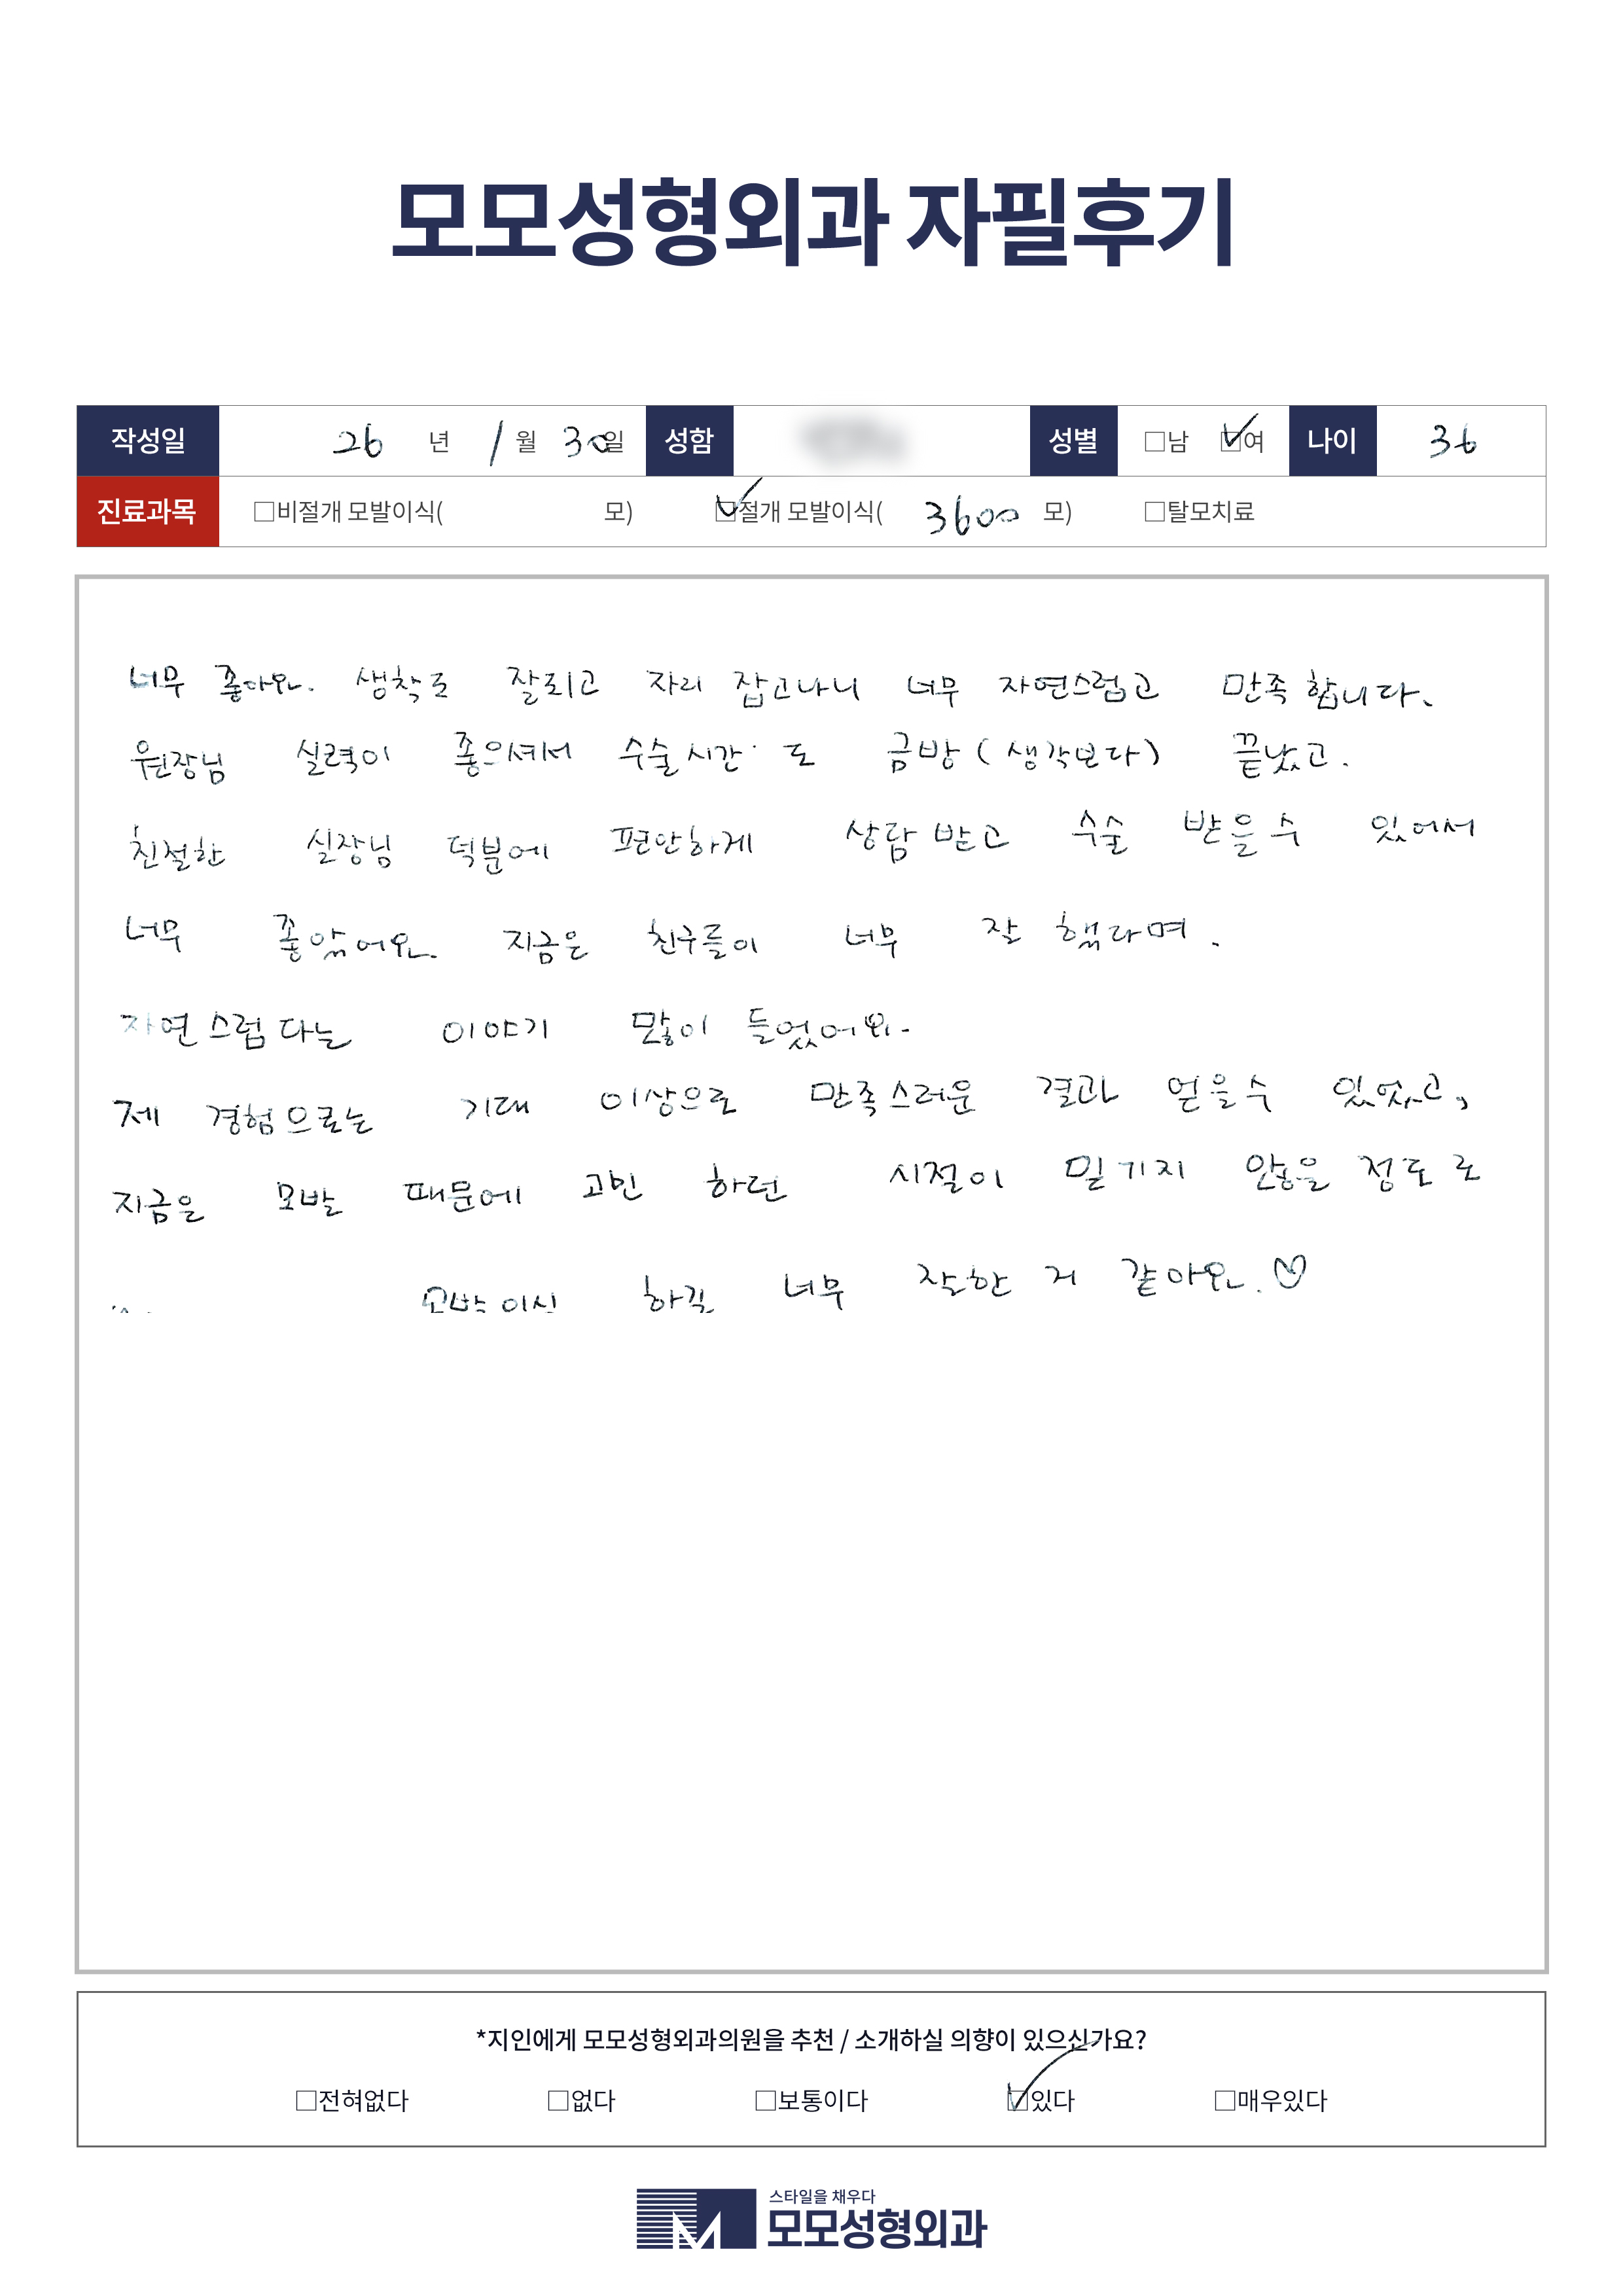 모모성형외과 자필후기
작성일 26 년 1 월 30일 성함 성별 □남 ☑여 나이 36
진료과목 □비절개 모발이식( 모) ☑절개 모발이식( 3600 모) □탈모치료
너무 좋아요. 생착도 잘되고 자리 잡고나니 너무 자연스럽고 만족합니다.
원장님 실력이 좋으셔서 수술시간도 금방(생각보다) 끝났고.
친절한 실장님 덕분에 편안하게 상담 받고 수술 받을 수 있어서
너무 좋았어요. 지금은 친구들이 너무 잘 했다며.
자연스럽다는 이야기 많이 들었어요.
제 경험으로는 기대 이상으로 만족스러운 결과 얻을수 있었고,
지금은 모발 때문에 고민 하던 시절이 믿기지 않을 정도로
모발이식 하길 너무 잘한 거 같아요.♡
*지인에게 모모성형외과의원을 추천 / 소개하실 의향이 있으신가요?
□전혀없다 □없다 □보통이다 ☑있다 □매우있다
스타일을 채우다
모모성형외과